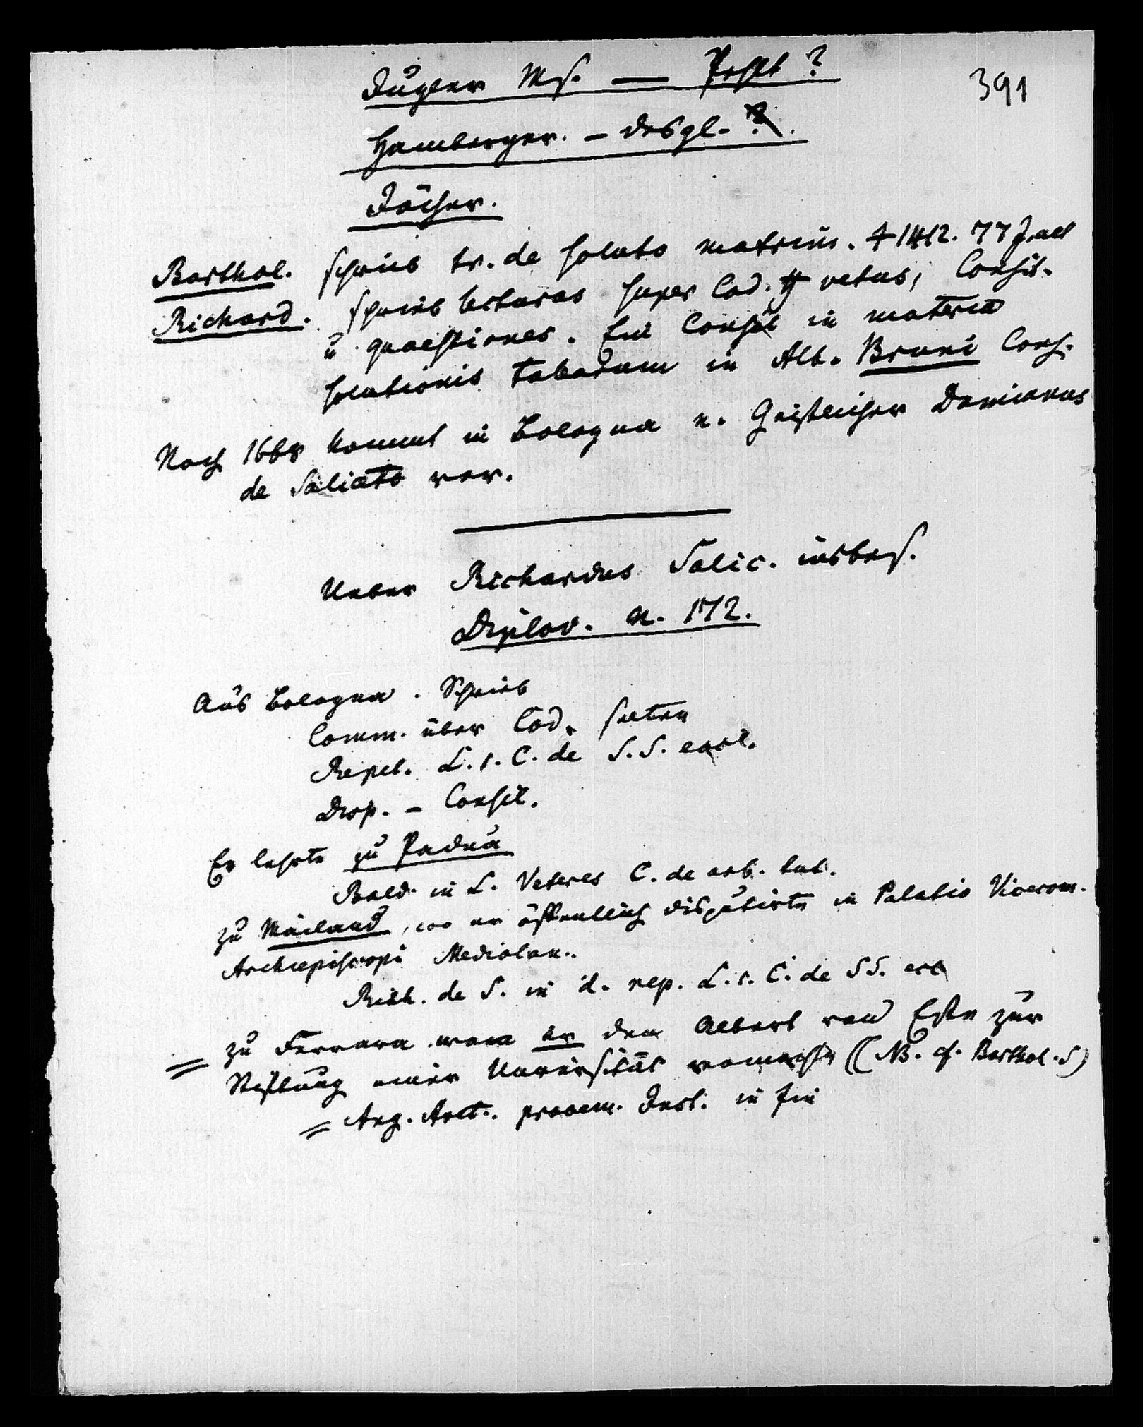 391
Ms. — fehlt?
Hamberger. – desgl. ?.
Jöcher.
Barthol. schrieb tr. de soluto matrim. † 1412. 77 J. alt
Richard. schrieb lecturas super Cod. ff vetus, Consil.
u. quaestiones. Ein Consil in materia
solutionis in Alb. Bruni Cons.
Noch 1668 kommt in Bologna e. Geistlicher Damianus
de Saliceto vor.
Ueber Richardus Salic. insbes.
Diplov. n. 172.
Aus Bologna. Schrieb
Comm. über Cod. selten
Repet. L. 1. C. de S. S. eccl.
Disp. – Consil.
Er lehrte zu Padua
Bald. in L. Veteres C. de
zu Mailand, wo er öffentlich disputirte in Palatio Vicecom.
Archiepiscopi Mediolan.
Rich. de S. in d. rep. L. 1. C. de SS. ecc
zu Ferrara wenn er den Albert von Este zur
Stiftung einer Universität vermochte (NB. cf. Barthol. S)
Ang. Aret. prooem. Inst. in fin